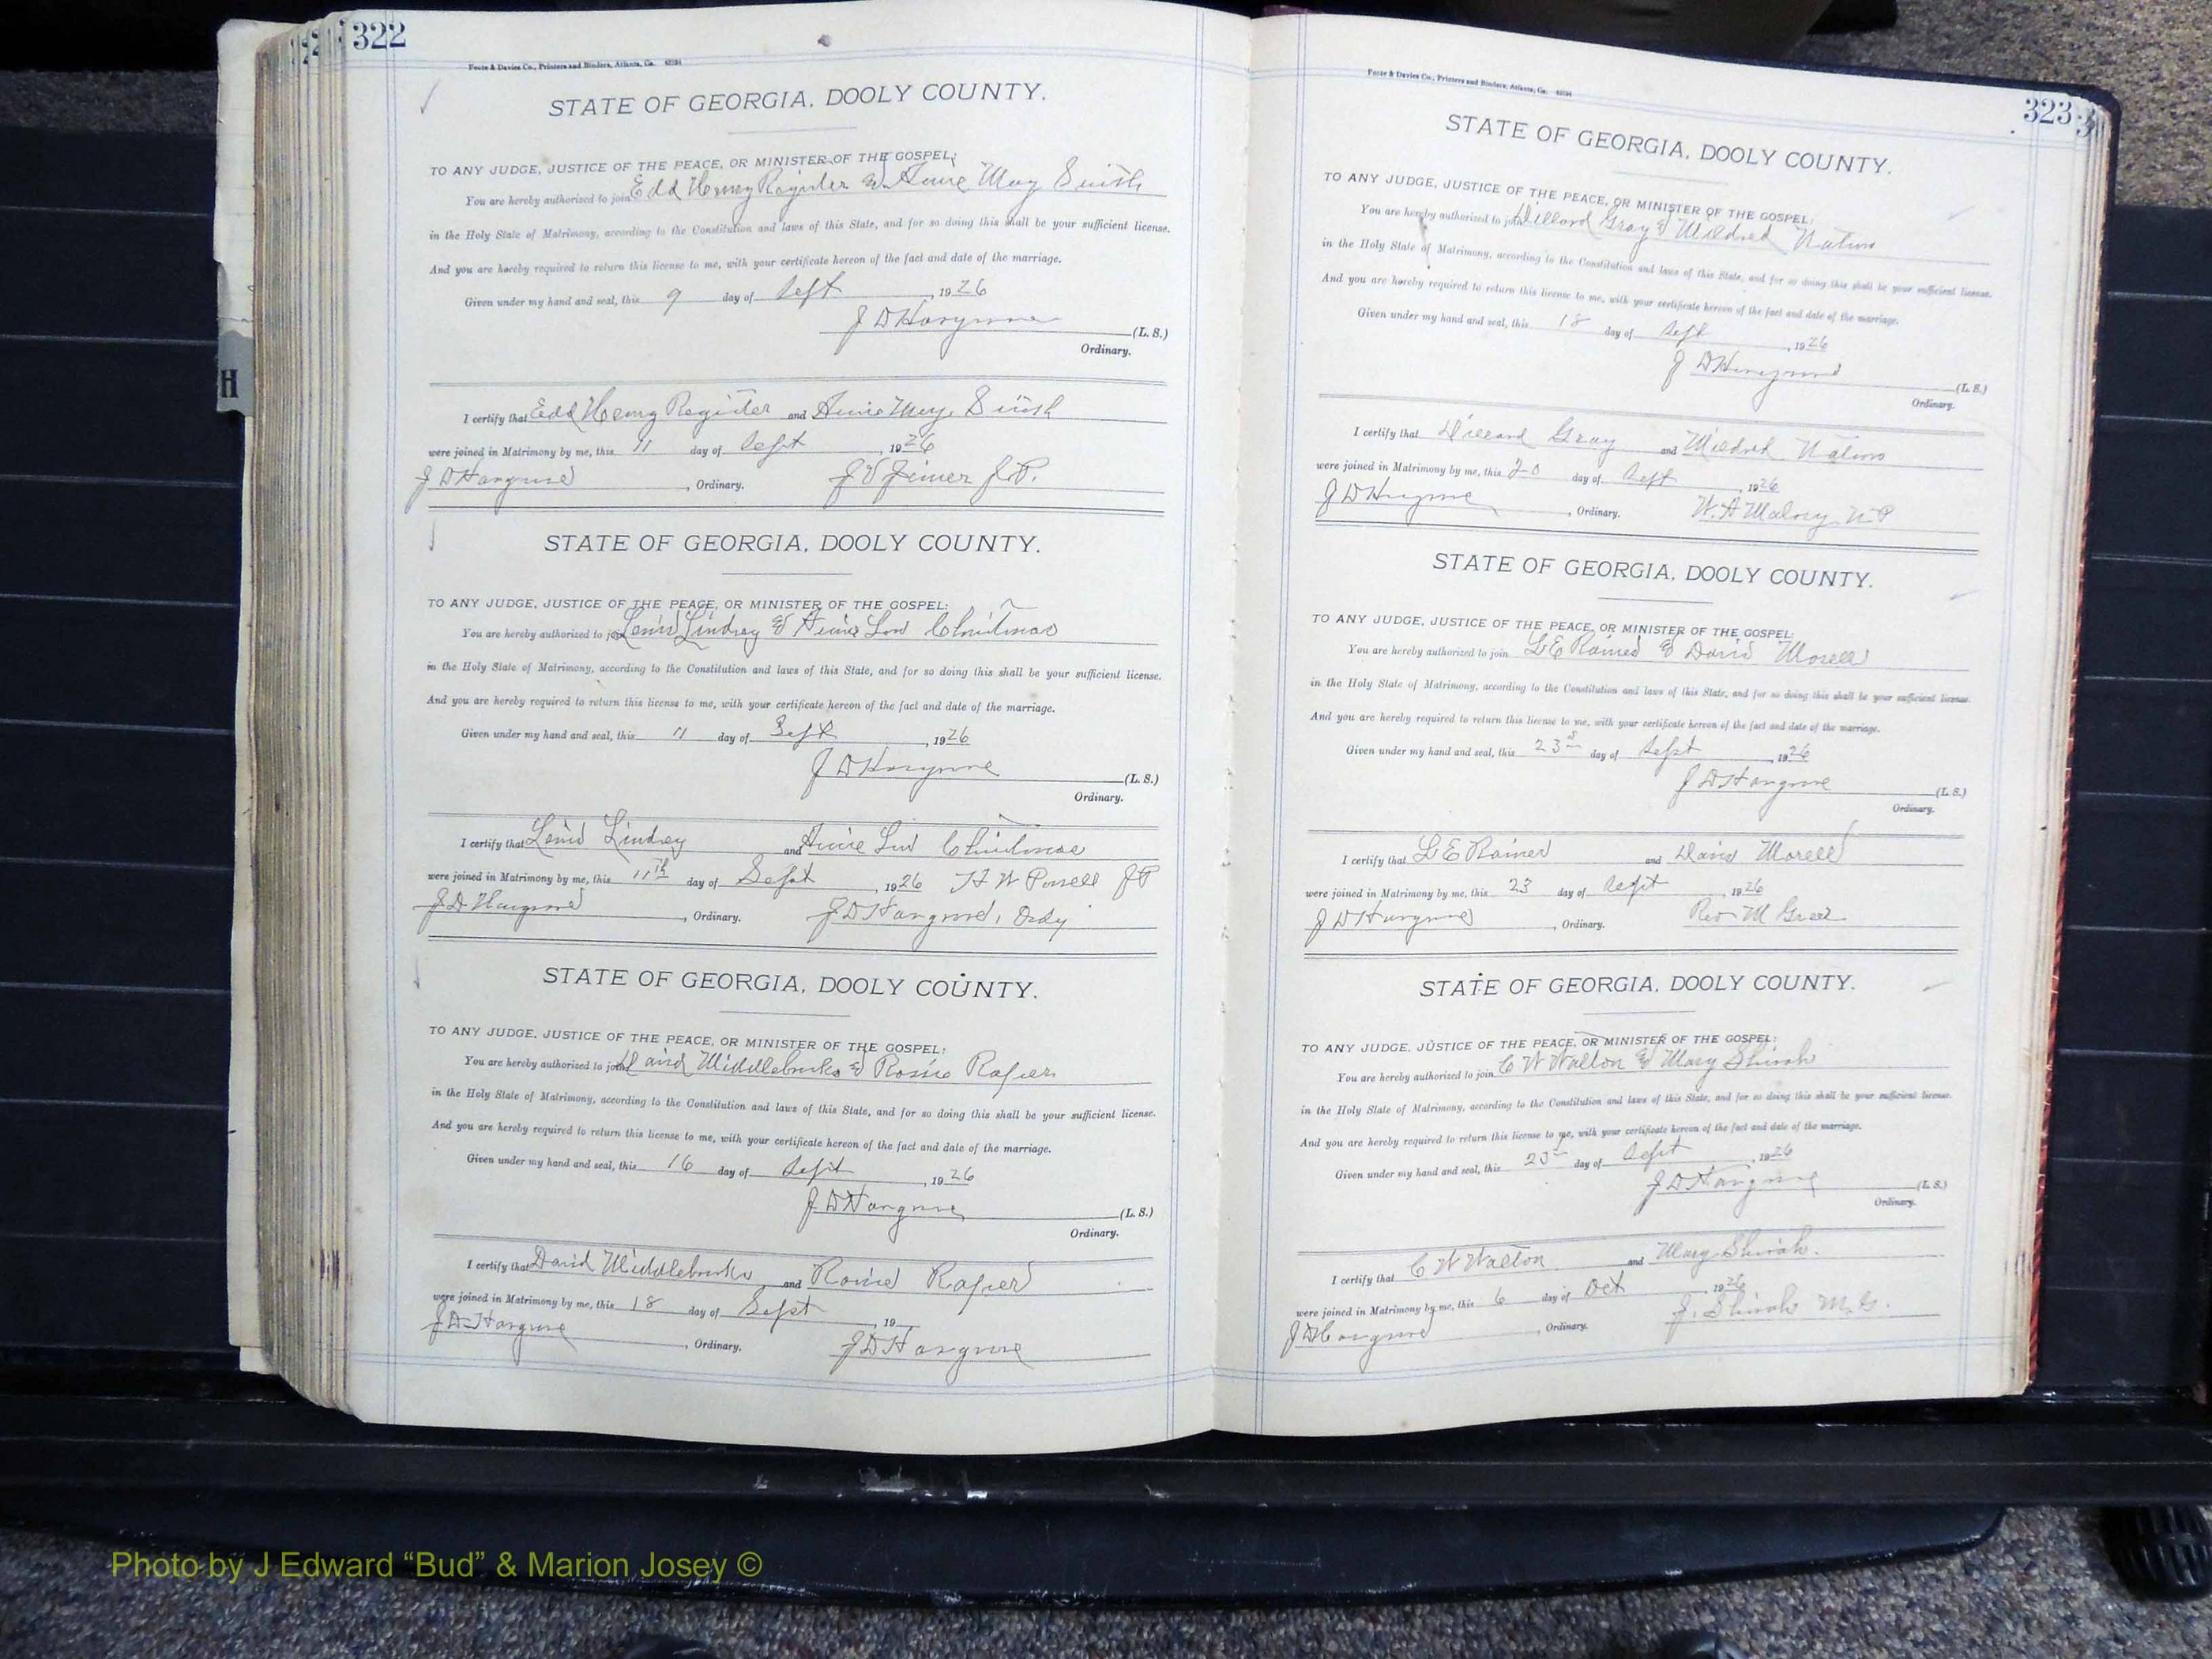 322
Foote & Davies Co., Printers and Binders, Atlanta, Ga.
STATE OF GEORGIA, DOOLY COUNTY.
TO ANY JUDGE, JUSTICE OF THE PEACE, OR MINISTER OF THE GOSPEL:
You are hereby authorized to join Edd Henry Register & Annie May Smith
in the Holy State of Matrimony, according to the Constitution and laws of this State, and for so doing this shall be your sufficient license.
And you are hereby required to return this license to me, with your certificate hereon of the fact and date of the marriage.
Given under my hand and seal, this 9 day of Sept, 1926
J D Hargrove (L. S.)
Ordinary.
I certify that Edd Henry Register and Annie May Smith
were joined in Matrimony by me, this 11 day of Sept, 1926
J D Hargrove, Ordinary. Joiner J.P.
STATE OF GEORGIA, DOOLY COUNTY.
TO ANY JUDGE, JUSTICE OF THE PEACE, OR MINISTER OF THE GOSPEL:
You are hereby authorized to join Lewis Lindsey & Annie Lou Christmas
in the Holy State of Matrimony, according to the Constitution and laws of this State, and for so doing this shall be your sufficient license.
And you are hereby required to return this license to me, with your certificate hereon of the fact and date of the marriage.
Given under my hand and seal, this 11 day of Sept, 1926
J D Hargrove (L. S.)
Ordinary.
I certify that Lewis Lindsey and Annie Lou Christmas
were joined in Matrimony by me, this 11th day of Sept, 1926 H W Powell JP
J D Hargrove, Ordinary. J D Hargrove, Ordy
STATE OF GEORGIA, DOOLY COUNTY.
TO ANY JUDGE, JUSTICE OF THE PEACE, OR MINISTER OF THE GOSPEL:
You are hereby authorized to join David Middlebrooks & Rosie Rafier
in the Holy State of Matrimony, according to the Constitution and laws of this State, and for so doing this shall be your sufficient license.
And you are hereby required to return this license to me, with your certificate hereon of the fact and date of the marriage.
Given under my hand and seal, this 16 day of Sept, 1926
J D Hargrove (L. S.)
Ordinary.
I certify that David Middlebrooks and Rosie Rafier
were joined in Matrimony by me, this 18 day of Sept, 19
J D Hargrove, Ordinary. J D Hargrove
323
Foote & Davies Co., Printers and Binders, Atlanta, Ga.
STATE OF GEORGIA, DOOLY COUNTY.
TO ANY JUDGE, JUSTICE OF THE PEACE, OR MINISTER OF THE GOSPEL:
You are hereby authorized to join Dillard Gray & Mildred
in the Holy State of Matrimony, according to the Constitution and laws of this State, and for so doing this shall be your sufficient license.
And you are hereby required to return this license to me, with your certificate hereon of the fact and date of the marriage.
Given under my hand and seal, this 18 day of Sept, 1926
J D Hargrove (L. S.)
Ordinary.
I certify that Dillard Gray and Mildred
were joined in Matrimony by me, this 20 day of Sept, 1926
J D Hargrove, Ordinary. W. A N P
STATE OF GEORGIA, DOOLY COUNTY.
TO ANY JUDGE, JUSTICE OF THE PEACE, OR MINISTER OF THE GOSPEL:
You are hereby authorized to join L E Raines & Doris Morell
in the Holy State of Matrimony, according to the Constitution and laws of this State, and for so doing this shall be your sufficient license.
And you are hereby required to return this license to me, with your certificate hereon of the fact and date of the marriage.
Given under my hand and seal, this 23 day of Sept, 1926
J D Hargrove (L. S.)
Ordinary.
I certify that L E Raines and Doris Morell
were joined in Matrimony by me, this 23 day of Sept, 1926
J D Hargrove, Ordinary. Rev M
STATE OF GEORGIA, DOOLY COUNTY.
TO ANY JUDGE, JUSTICE OF THE PEACE, OR MINISTER OF THE GOSPEL:
You are hereby authorized to join C W Walton & Mary Shirah
in the Holy State of Matrimony, according to the Constitution and laws of this State, and for so doing this shall be your sufficient license.
And you are hereby required to return this license to me, with your certificate hereon of the fact and date of the marriage.
Given under my hand and seal, this 23 day of Sept, 1926
J D Hargrove (L. S.)
Ordinary.
I certify that C W Walton and Mary Shirah.
were joined in Matrimony by me, this 6 day of Oct, 1926
J D Hargrove, Ordinary. J. Shirah M.G.
H
Photo by J Edward “Bud” & Marion Josey ©